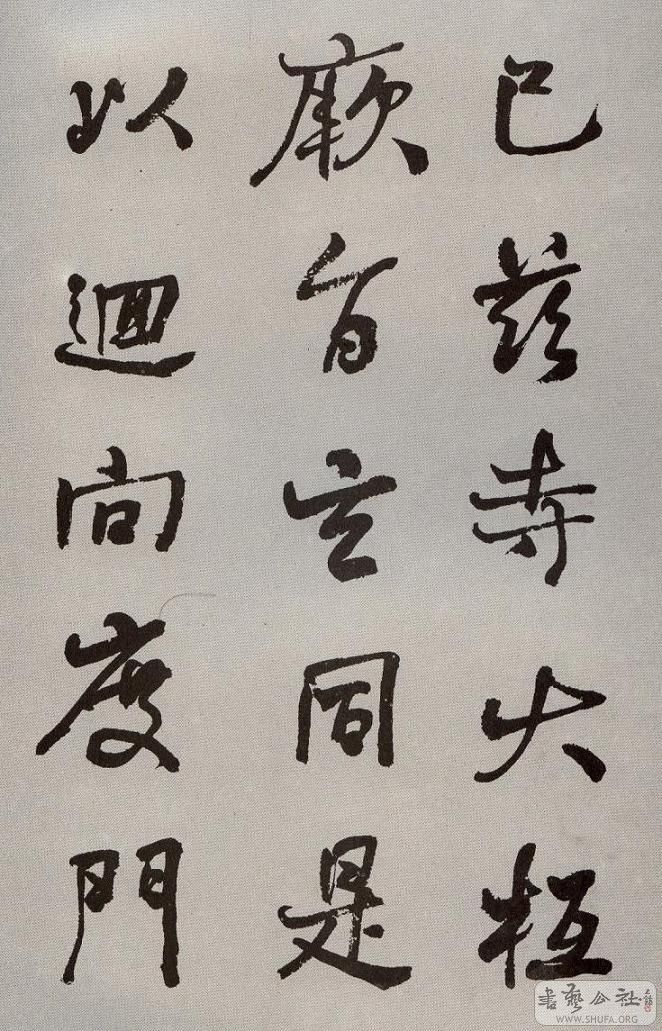 已茲寺大抵
厥旨玄同是
以迴向度門
書藝公社
WWW.SHUFA.ORG